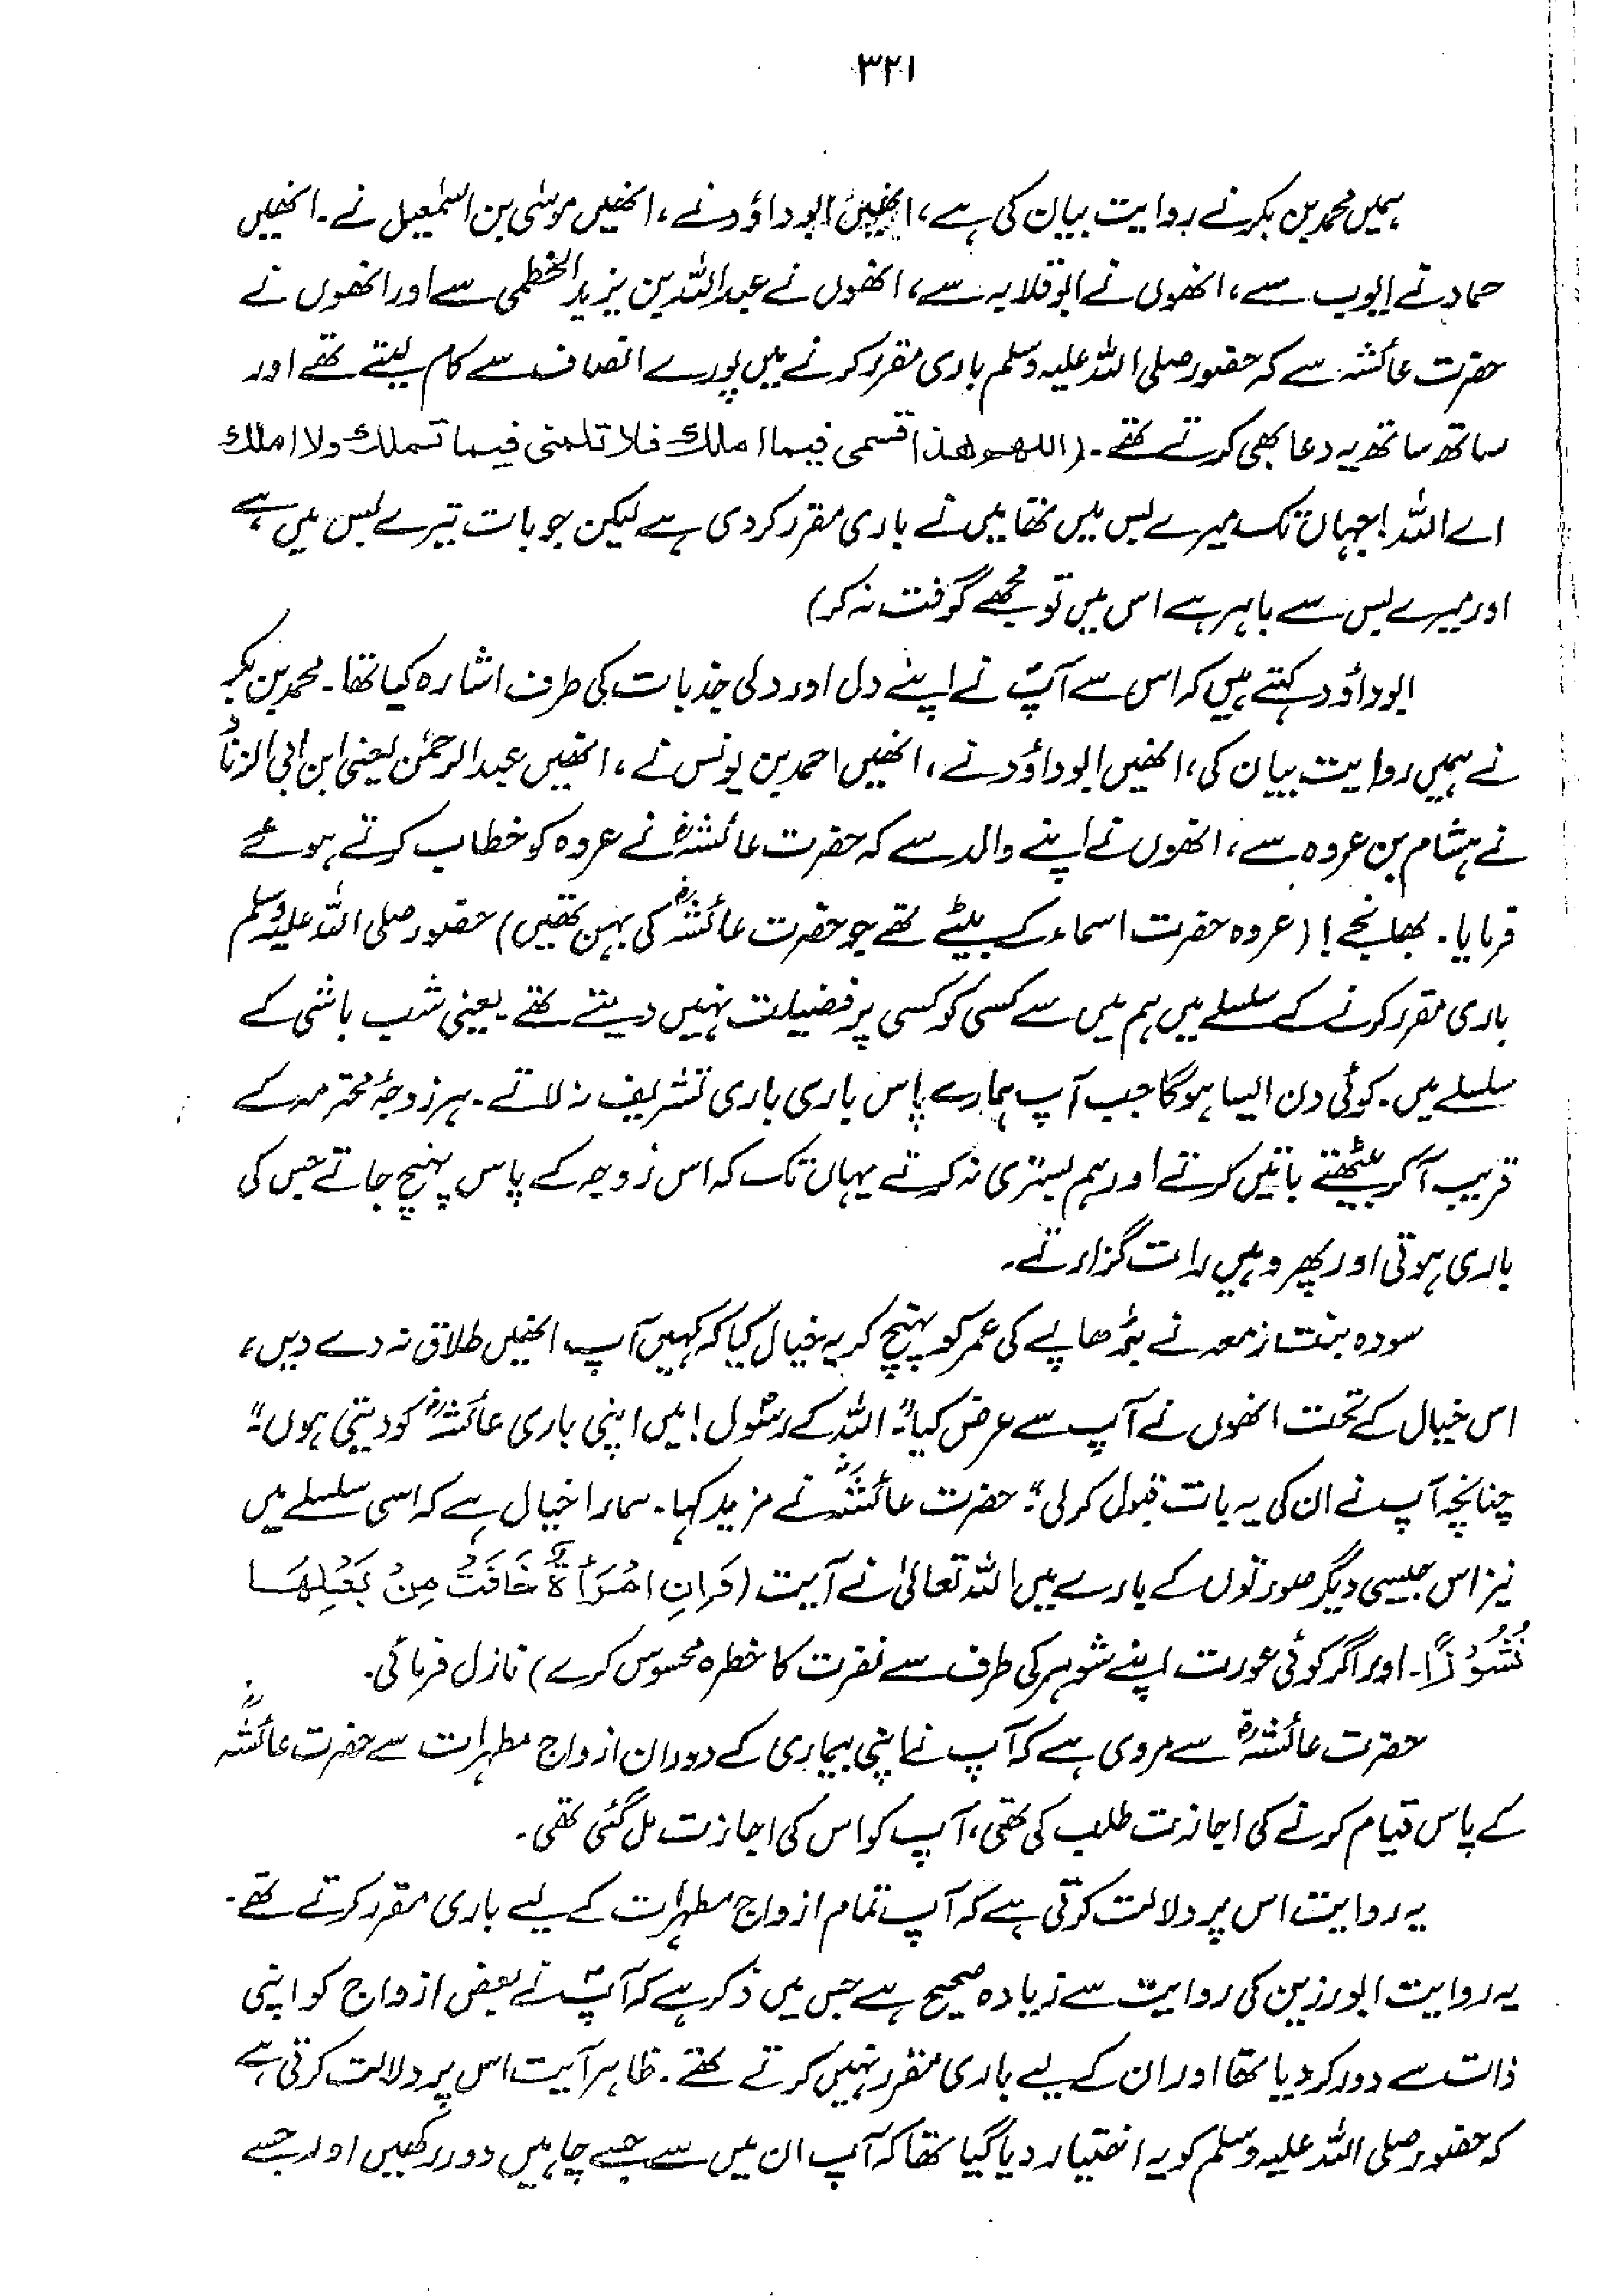 ۳۲۱
ہمیں محمد بن بکر نے روایت بیان کی ہے، انھیں ابوداؤد نے، انھیں موسٰی بن اسمٰعیل نے۔ انھیں
حماد نے ایوب سے، انھوں نے ابو قلابہ سے، انھوں نے عبداللہ بن یزید الخطمی سے اور انھوں نے
حضرت عائشہ سے کہ حضور صلی اللہ علیہ وسلم باری مقرر کرنے میں پورے انصاف سے کام لیتے تھے اور
ساتھ ساتھ یہ دعا بھی کرتے تھے۔ (اللھم ھذا قسمی فیما املك فلا تلمنی فیما تملك ولا املك
اے اللہ! جہاں تک میرے بس میں تھا میں نے باری مقرر کر دی ہے لیکن جو بات تیرے بس میں ہے
اور میرے بس سے باہر ہے اس میں تو مجھے گرفت نہ کر)
ابوداؤد کہتے ہیں کہ اس سے آپؐ نے اپنے دل اور دلی جذبات کی طرف اشارہ کیا تھا۔ محمد بن بکر
نے ہمیں روایت بیان کی، انھیں ابوداؤد نے، انھیں احمد بن یونس نے، انھیں عبدالرحمٰن یعنی ابن ابی الزناد
نے ہشام بن عروہ سے، انھوں نے اپنے والد سے کہ حضرت عائشہؓ نے عروہ کو خطاب کرتے ہوئے
فرمایا۔ بھانجے! (عروہ حضرت اسماء کے بیٹے تھے جو حضرت عائشہؓ کی بہن تھیں) حضور صلی اللہ علیہ وسلم
باری مقرر کرنے کے سلسلے میں ہم میں سے کسی کو کسی پر فضیلت نہیں دیتے تھے۔ یعنی شب باشی کے
سلسلے میں۔ کوئی دن ایسا ہوگا جب آپ ہمارے پاس باری باری تشریف نہ لاتے۔ ہر زوجۂ محترمہ کے
قریب آ کر بیٹھتے باتیں کرتے اور ہم بستری نہ کرتے یہاں تک کہ اس زوجہ کے پاس پہنچ جاتے جس کی
باری ہوتی اور پھر وہیں رات گزارتے۔
سودہ بنت زمعہ نے بڑھاپے کی عمر کو پہنچ کر یہ خیال کیا کہ کہیں آپ انھیں طلاق نہ دے دیں،
اس خیال کے تحت انھوں نے آپ سے عرض کیا"۔ اللہ کے رسول! میں اپنی باری عائشہؓ کو دیتی ہوں"۔
چنانچہ آپ نے ان کی یہ بات قبول کر لی"۔ حضرت عائشہؓ نے مزید کہا۔ ہمارا خیال ہے کہ اسی سلسلے میں
نیز اس جیسی دیگر صورتوں کے بارے میں اللہ تعالیٰ نے آیت (وَاِنِ امْرَأَةٌ خَافَتْ مِنْ بَعْلِهَا
نُشُوْزًا۔ اور اگر کوئی عورت اپنے شوہر کی طرف سے نفرت کا خطرہ محسوس کرے) نازل فرمائی۔
حضرت عائشہؓ سے مروی ہے کہ آپ نے اپنی بیماری کے دوران ازواج مطہرات سے حضرت عائشہؓ
کے پاس قیام کرنے کی اجازت طلب کی تھی، آپ کو اس کی اجازت مل گئی تھی۔
یہ روایت اس پر دلالت کرتی ہے کہ آپ تمام ازواج مطہرات کے لیے باری مقرر کرتے تھے۔
یہ روایت ابورزین کی روایت سے زیادہ صحیح ہے جس میں ذکر ہے کہ آپؐ نے بعض ازواج کو اپنی
ذات سے دور کر دیا تھا اور ان کے لیے باری مقرر نہیں کرتے تھے۔ ظاہر آیت اس پر دلالت کرتی ہے
کہ حضور صلی اللہ علیہ وسلم کو یہ اختیار دیا گیا تھا کہ آپ ان میں سے جسے چاہیں دور رکھیں اور جسے